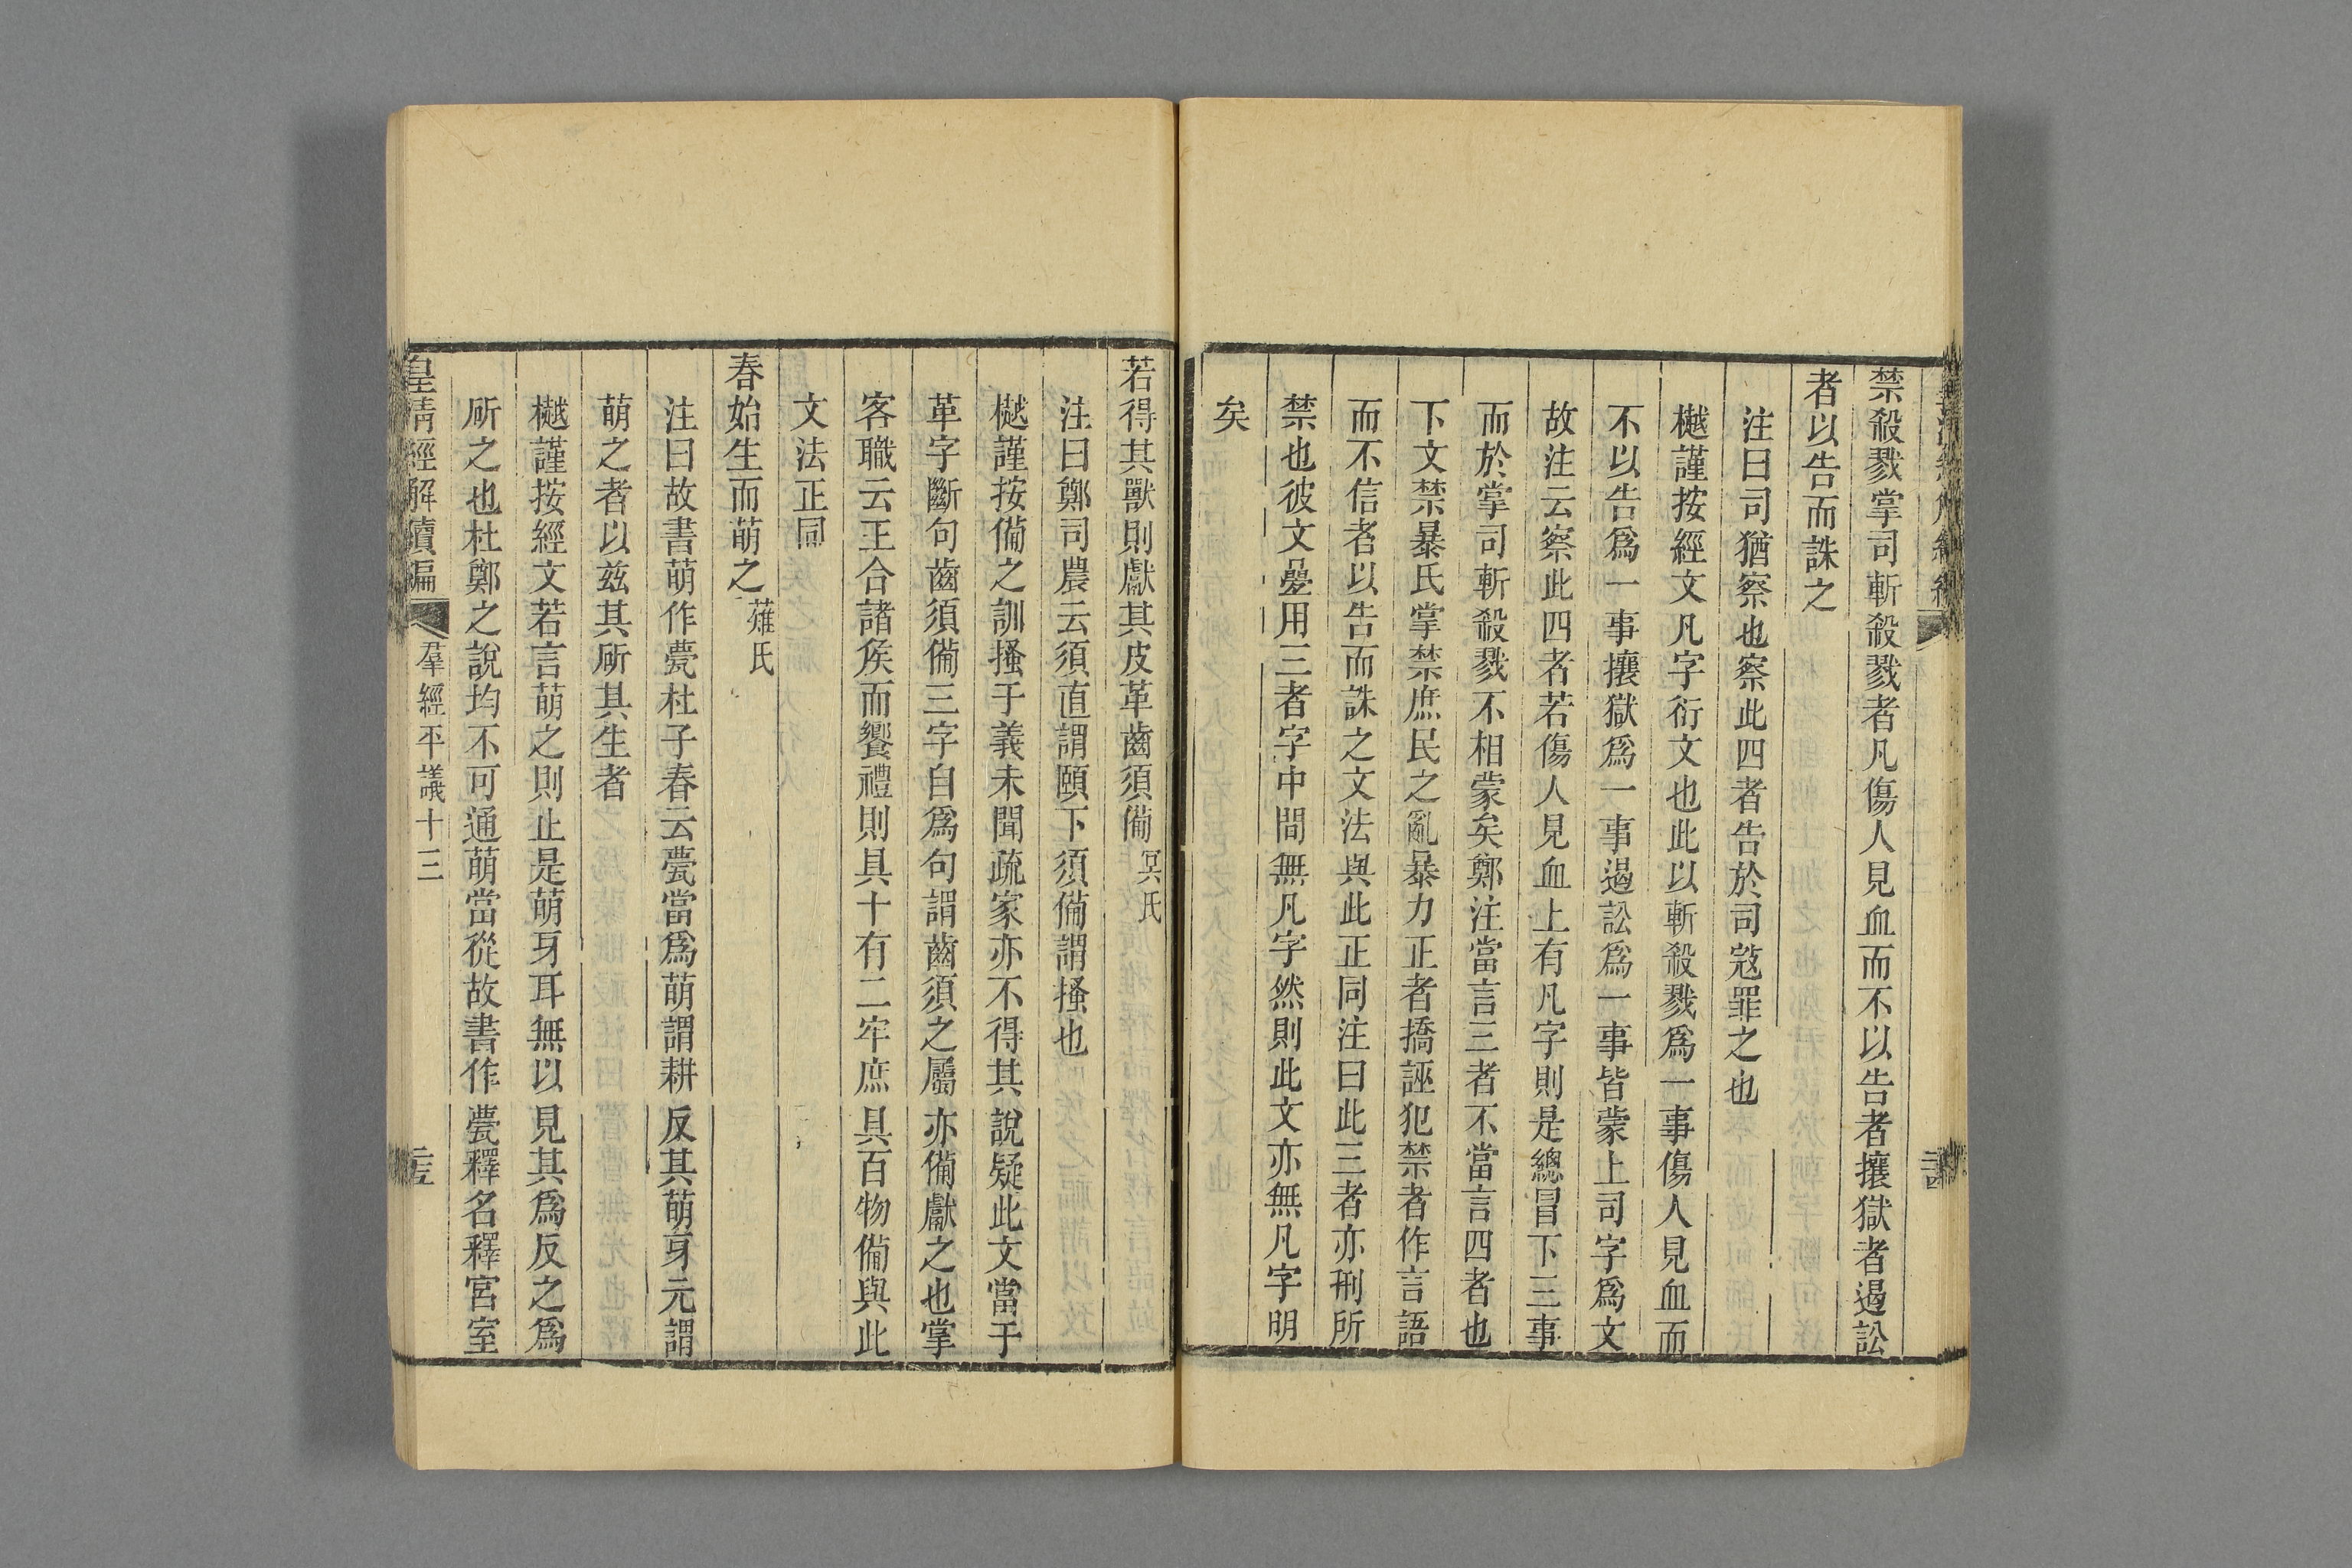 禁殺戮掌司斬殺戮者凡傷人見血而不以告者攘獄者遏訟
者以告而誅之
注曰司猶察也察此四者告於司寇罪之也
樾謹按經文凡字衍文也此以斬殺戮爲一事傷人見血而
不以告爲一事攘獄爲一事遏訟爲一事皆蒙上司字爲文
故注云察此四者若傷人見血上有凡字則是總冒下三事
而於掌司斬殺戮不相蒙矣鄭注當言三者不當言四者也
下文禁暴氏掌禁庶民之亂暴力正者撟誣犯禁者作言語
而不信者以告而誅之文法與此正同注曰此三者亦刑所
禁也彼文疊用三者字中間無凡字然則此文亦無凡字明
矣
若得其獸則獻其皮革齒須備冥氏
注曰鄭司農云須直謂頤下須備謂搔也
樾謹按備之訓搔于義未聞疏家亦不得其說疑此文當于
革字斷句齒須備三字自爲句謂齒須之屬亦備獻之也掌
客職云王合諸矦而饗禮則具十有二牢庶具百物備與此
文法正同
春始生而萌之薙氏
注曰故書萌作甍杜子春云甍當爲萌謂耕反其萌芽元謂
萌之者以茲其斫其生者
樾謹按經文若言萌之則止是萌芽耳無以見其爲反之爲
斫之也杜鄭之說均不可通萌當從故書作甍釋名釋宮室
皇清經解續編 羣經平議十三 二五